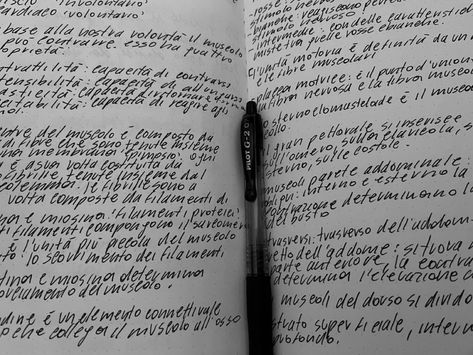 liscio involontario
cardiaco volontario
base alla nostra volontà il muscolo
può contrarre. esso ha quattro
proprietà
contrattilità: capacità di contrarsi
estensibilità: capacità di
elasticità: capacità
eccitabilità: capacità di reagire agli
stimoli
del muscolo è composto da
di fibre che sono tenute insieme
una membrana (epimisio). ogni
è a sua volta costituita da
miofibrille, tenute insieme dal
sarcolemma. le fibrille sono a
volta composte da filamenti di
actina e miosina. filamenti proteici
filamenti compongono il sarcomero
è l'unità più piccola del muscolo
lo scorrimento dei filamenti
actina e miosina determina
del muscolo.
tendine è un elemento connettivale
che collega il muscolo all'osso
PILOT G-2
stimolo nervoso
bianche:
stimolo nervoso
intermedie: con delle caratteristiche
miste tra quelle rosse e bianche.
l'unità motoria è definita da un
e le fibre muscolari
placca motrice: è il punto d'unione
la fibra nervosa e la fibra muscolare
lo sternocleidomastoideo è il muscolo
collo.
il gran pettorale si inserisce
all'omero, sulla clavicola, sullo
sterno, sulle costole.
muscoli parete addominale:
obliqui: interno e esterno la
determinano la
del busto
trasversi: trasverso dell'addome
retto dell'addome: si trova
parte anteriore la contrazione
determina l'elevazione
muscoli del dorso si dividono
strato superficiale, intermedio
profondo.